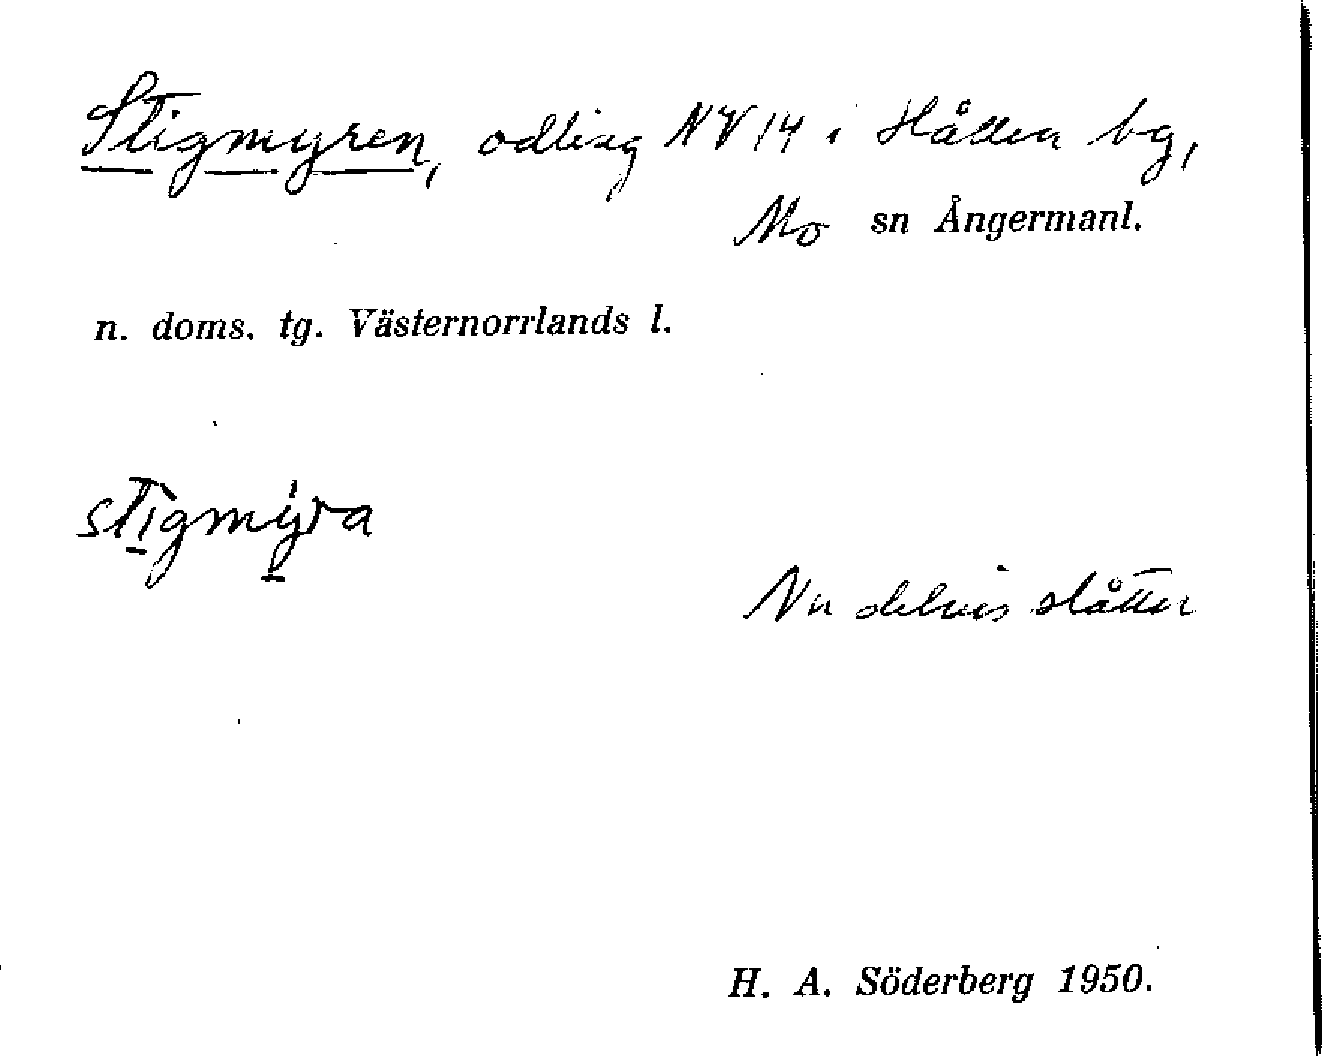 Stigmyren, odling NV 14 i Hållen bg,
Mo sn Ångermanl.
n. doms. tg. Västernorrlands l.
stìgmýra
Nu delvis slåtter
H. A. Söderberg 1950.